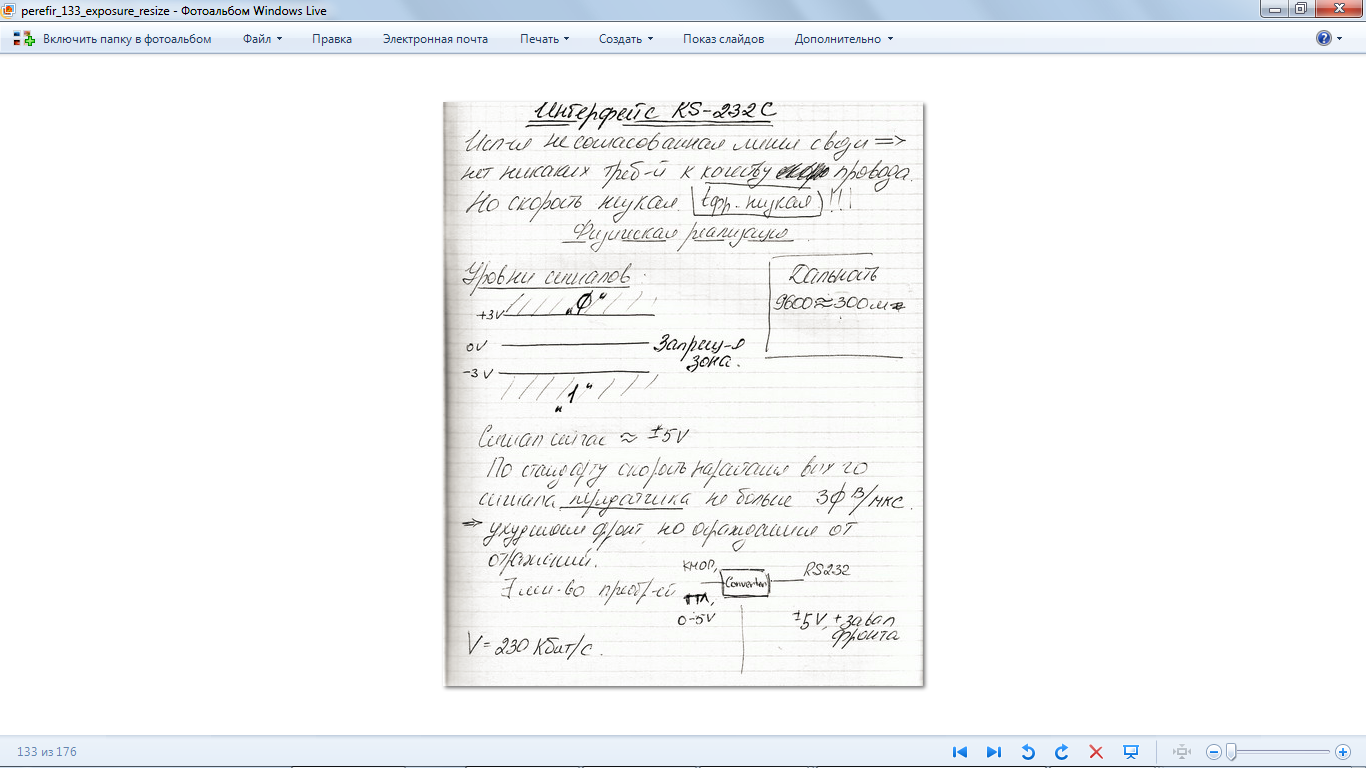 perefir_133_exposure_resize - Фотоальбом Windows Live
Включить папку в фотоальбом Файл Правка Электронная почта Печать Создать Показ слайдов Дополнительно
Интерфейс RS-232C
Исп-ся не согласованная линия связи =>
нет никаких треб-й к качеству провода.
Но скорость низкая. (tфр. низкая) !!!
Физическая реализация.
Уровни сигналов.
Дальность
9600≈300м
„0“
+3V
0V
Запрещ-я
зона.
-3V
„1“
Сигнал сейчас ≈ ±5V
По стандарту скорость нарастания вых-го
сигнала передатчика не больше 30 В/мкс.
=> ухудшаем фронт но от
отражений.
КМОП,
Converter
RS232
∃ мн-во преобр-ей
ТТЛ,
0-5V
±5V, +завал
фронта
V=230 Кбит/с.
133 из 176